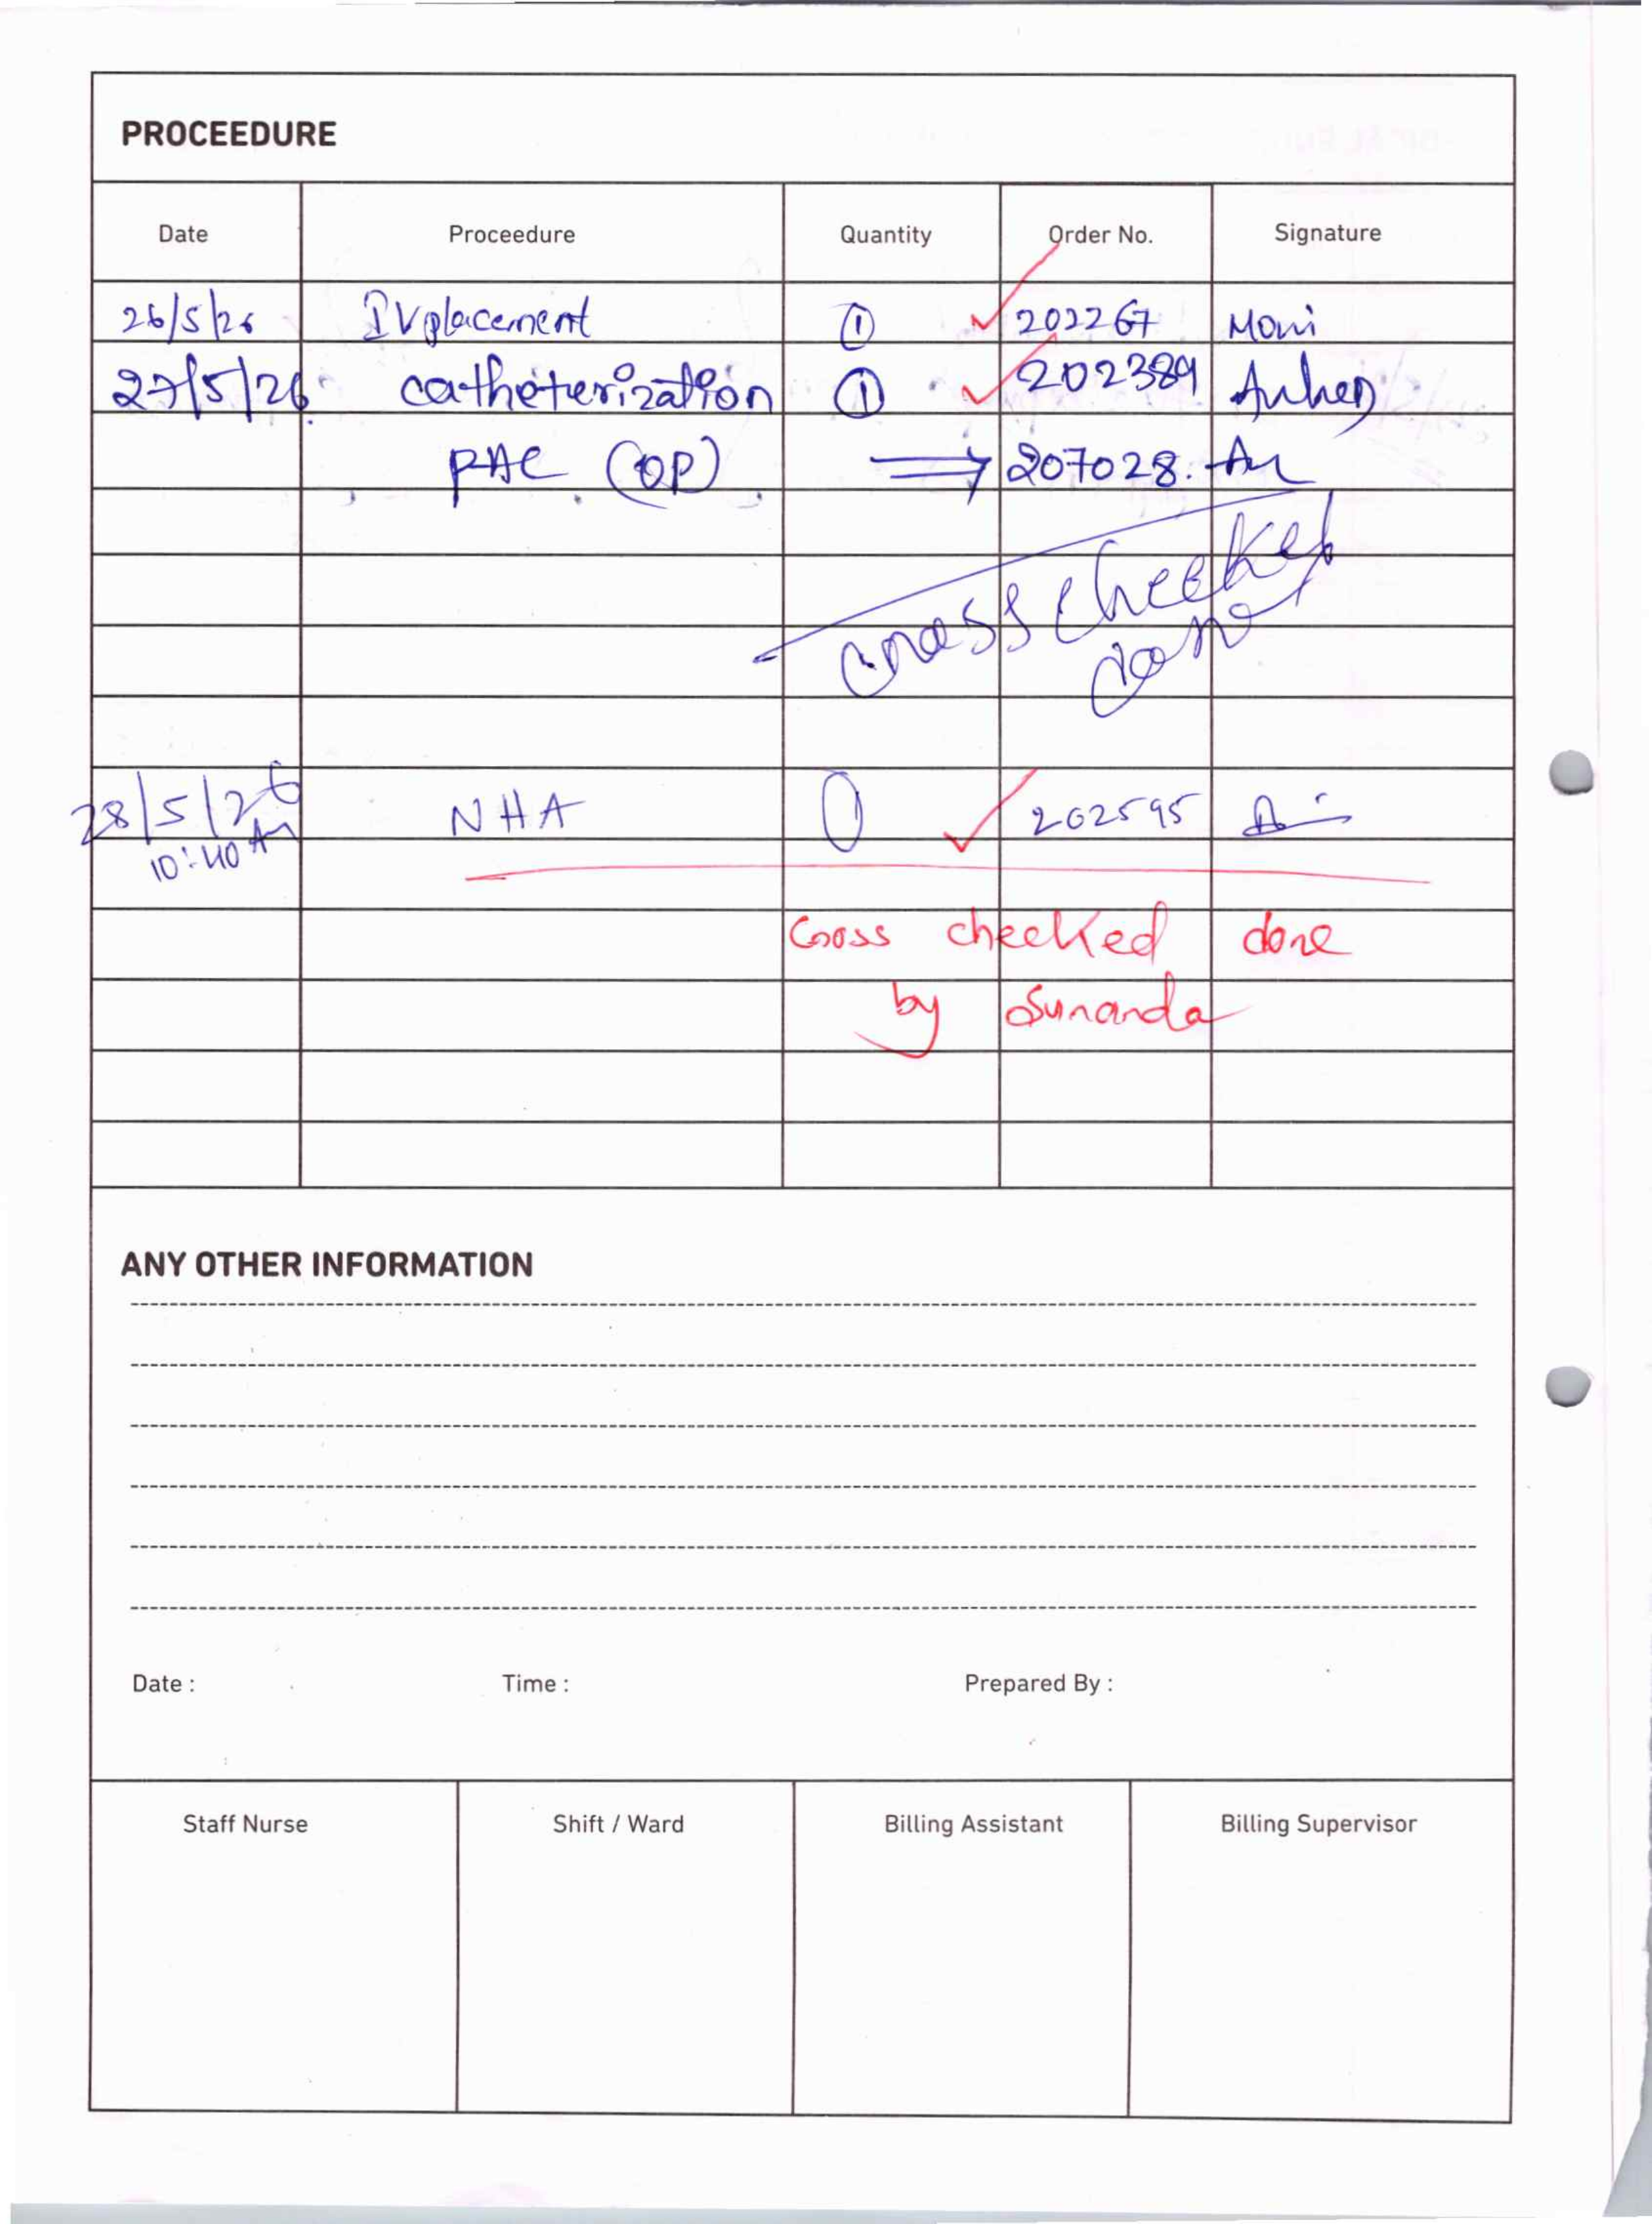 PROCEEDURE
Date Proceedure Quantity Order No. Signature
26/5/26 IV placement ① 202267 Moni
27/5/26 catheterization ① 202389
PAC (OP) ⇒ 207028.
cross checked
done
28/5/26 NHA 1 202595
10:40 Am
Cross checked done
by Sunanda
ANY OTHER INFORMATION
Date : Time : Prepared By :
Staff Nurse Shift / Ward Billing Assistant Billing Supervisor